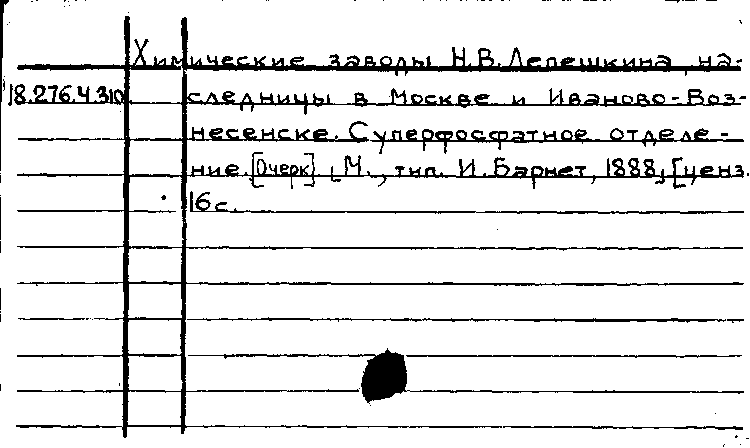 Химические заводы Н.В.Лепешкина, на-
18.276.4.310 следницы в Москве и Иваново-Воз-
несенске. Суперфосфатное отделе-
ние. [Очерк] [М., тип. И. Барнет, 1888], [ценз.
16 с.